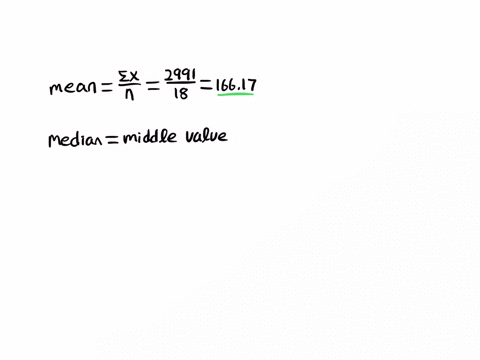 mean = Σx/n = 2991/18 = 166.17
median = middle value